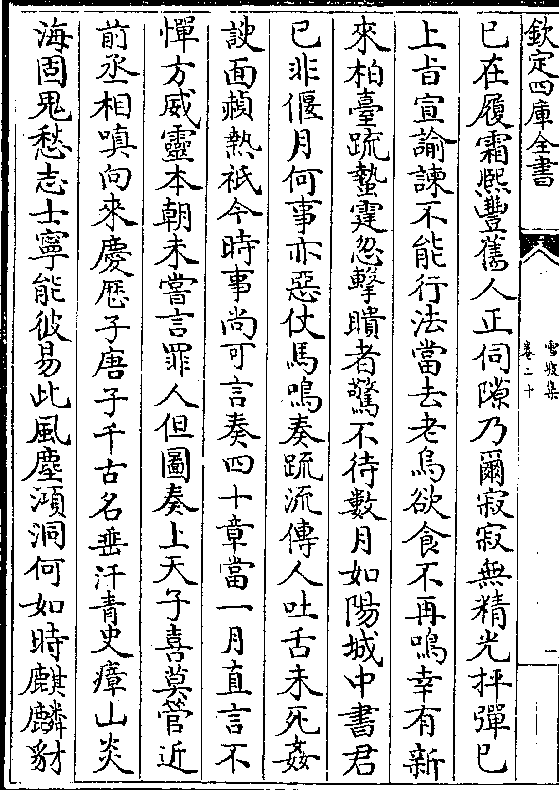 欽定四庫全書
雪坡集
卷二十
一
已在履霜熙豐舊人正伺隙乃爾寂寂無精光抨彈已
上㫖宣諭諫不能行法當去老烏欲食不再鳴幸有新
來柏臺疏蟄霆忽擊聵者驚不待數月如陽城中書君
已非偃月何事亦惡仗馬鳴奏疏流傳人吐舌未死姦
諛面頳熱祇今時事尚可言奏四十章當一月直言不
憚方威靈本朝未嘗言罪人但圖奏上天子喜莫管近
前丞相嗔向來慶歴子唐子千古名垂汗青史瘴山炎
海固鬼愁志士寧能彼易此風塵澒洞何如時麒麟豺